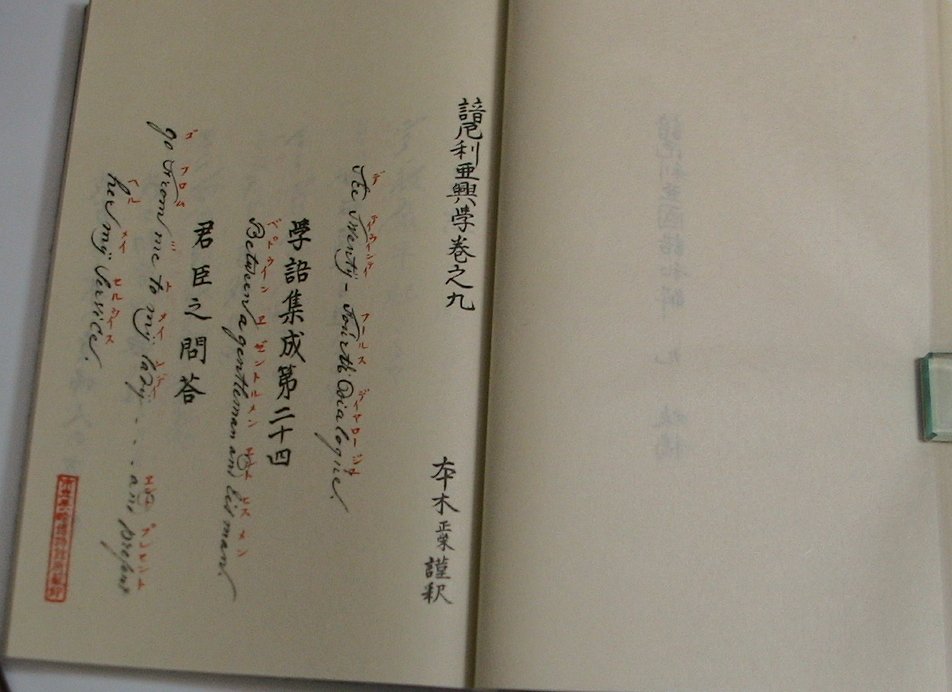 諳厄利亜興学巻之九
本木正栄謹釈
デ テウヱンティ フールス ディアロージュ
The Twenty-Fourth Dialogue.
学語集成第二十四
ベトウイン ヱ ゼントルメン ヱント ヒス メン
Between a gentleman and his man.
君臣之問答
ゴ フロム ミ ト メイ レディー ヱンド プレセント
go from me to my lady... and present
ヘル メイ セルウイス
her my Service.